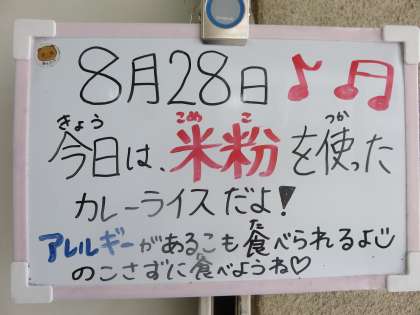 8月28日♪♬
きょう こめ こ つか
今日は、米粉を使った
カレーライスだよ!
アレルギーがあるこも食べられるよ
た
のこさずに食べようね♡
た